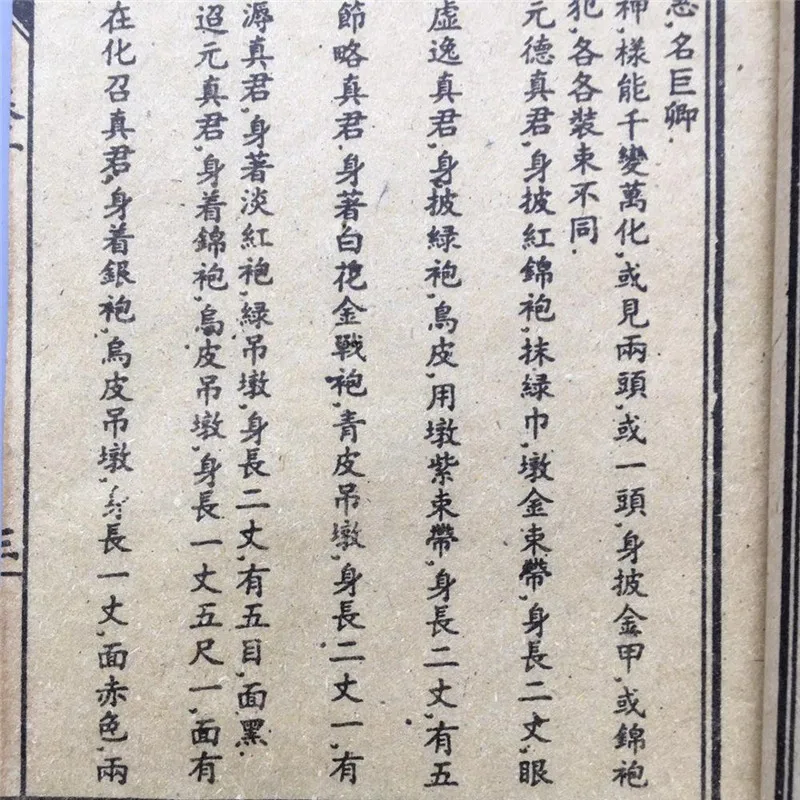 忌,名巨卿.
神,樣能千變萬化,或見兩頭,或一頭,身披金甲,或錦袍
犯,各各裝束不同.
元德真君,身披紅錦袍,抹綠巾,墩金束帶,身長二丈,眼
虛逸真君,身披綠袍,鳥皮,用墩紫束帶,身長二丈,有五
節略真君,身著白花金戰袍,青皮吊墩,身長二丈一,有
溽真君,身著淡紅袍,綠吊墩,身長二丈,有五目,面黑.
迢元真君,身着錦袍,烏皮吊墩,身長一丈五尺一,面有
在化召真君,身着銀袍,烏皮吊墩,身長一丈,面赤色,兩
三